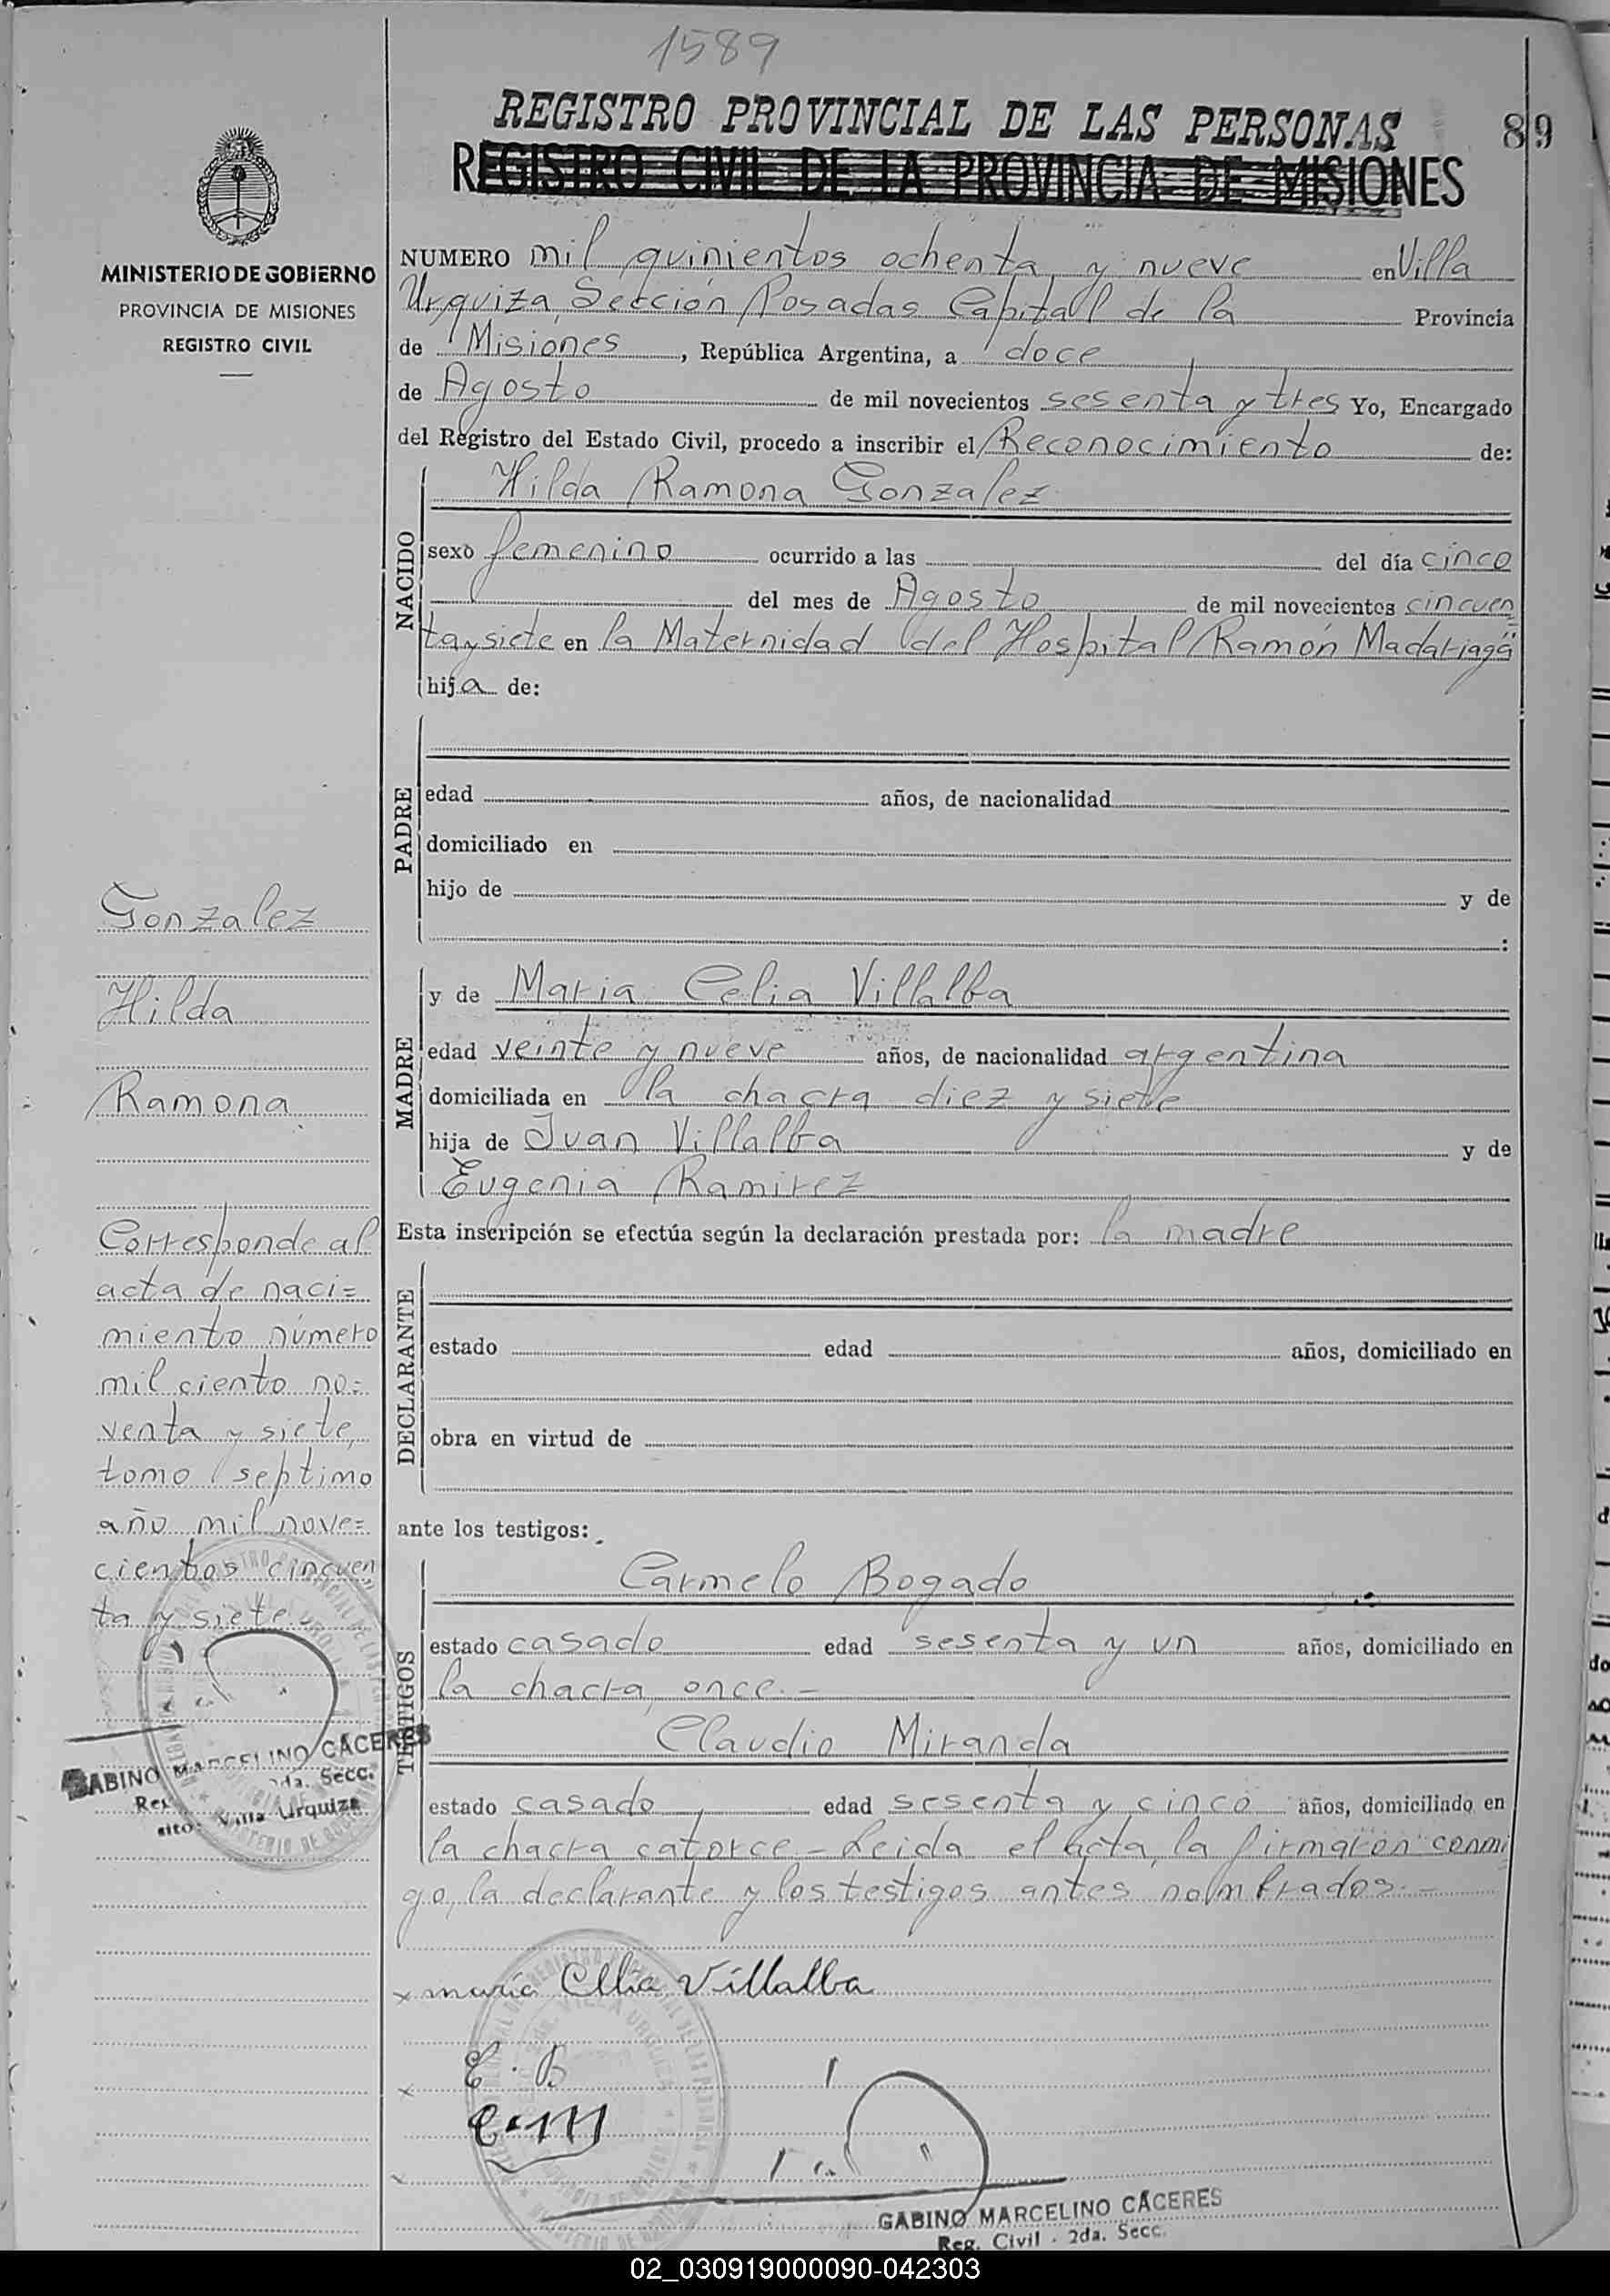 1589
REGISTRO PROVINCIAL DE LAS PERSONAS
89
REGISTRO CIVIL DE LA PROVINCIA DE MISIONES
MINISTERIO DE GOBIERNO
PROVINCIA DE MISIONES
REGISTRO CIVIL
NUMERO mil quinientos ochenta y nueve en Villa
Urquiza, Sección Posadas Capital de la Provincia
de Misiones, República Argentina, a doce
de Agosto de mil novecientos sesenta y tres Yo, Encargado
del Registro del Estado Civil, procedo a inscribir el Reconocimiento de:
NACIDO
Hilda Ramona Gonzalez
sexo femenino ocurrido a las del día cinco
del mes de Agosto de mil novecientos cincuen
ta y siete en la Maternidad del Hospital Ramón Madariaga
hija de:
PADRE
edad años, de nacionalidad
domiciliado en
hijo de y de
:
MADRE
y de Maria Celia Villalba
edad veinte y nueve años, de nacionalidad argentina
domiciliada en la chacra diez y siete
hija de Juan Villalba y de
Eugenia Ramirez
Esta inscripción se efectúa según la declaración prestada por: la madre
DECLARANTE
estado edad años, domiciliado en
obra en virtud de
ante los testigos:
TESTIGOS
Carmelo Bogado
estado casado edad sesenta y un años, domiciliado en
la chacra once.-
Claudio Miranda
estado casado, edad sesenta y cinco años, domiciliado en
la chacra catorce.- Leida el acta, la firmaron conmi
go, la declarante y los testigos antes nombrados.-
Gonzalez
Hilda
Ramona
Corresponde al
acta de naci=
miento número
mil ciento no=
venta y siete,
tomo septimo
año mil nove=
cientos cincuen
ta y siete.-
GABINO MARCELINO CACERES
2da. Secc.
Villa Urquiza
x maria Celia Villalba
x C. B
C.M
x
GABINO MARCELINO CÁCERES
Reg. Civil - 2da. Secc.
02_030919000090-042303